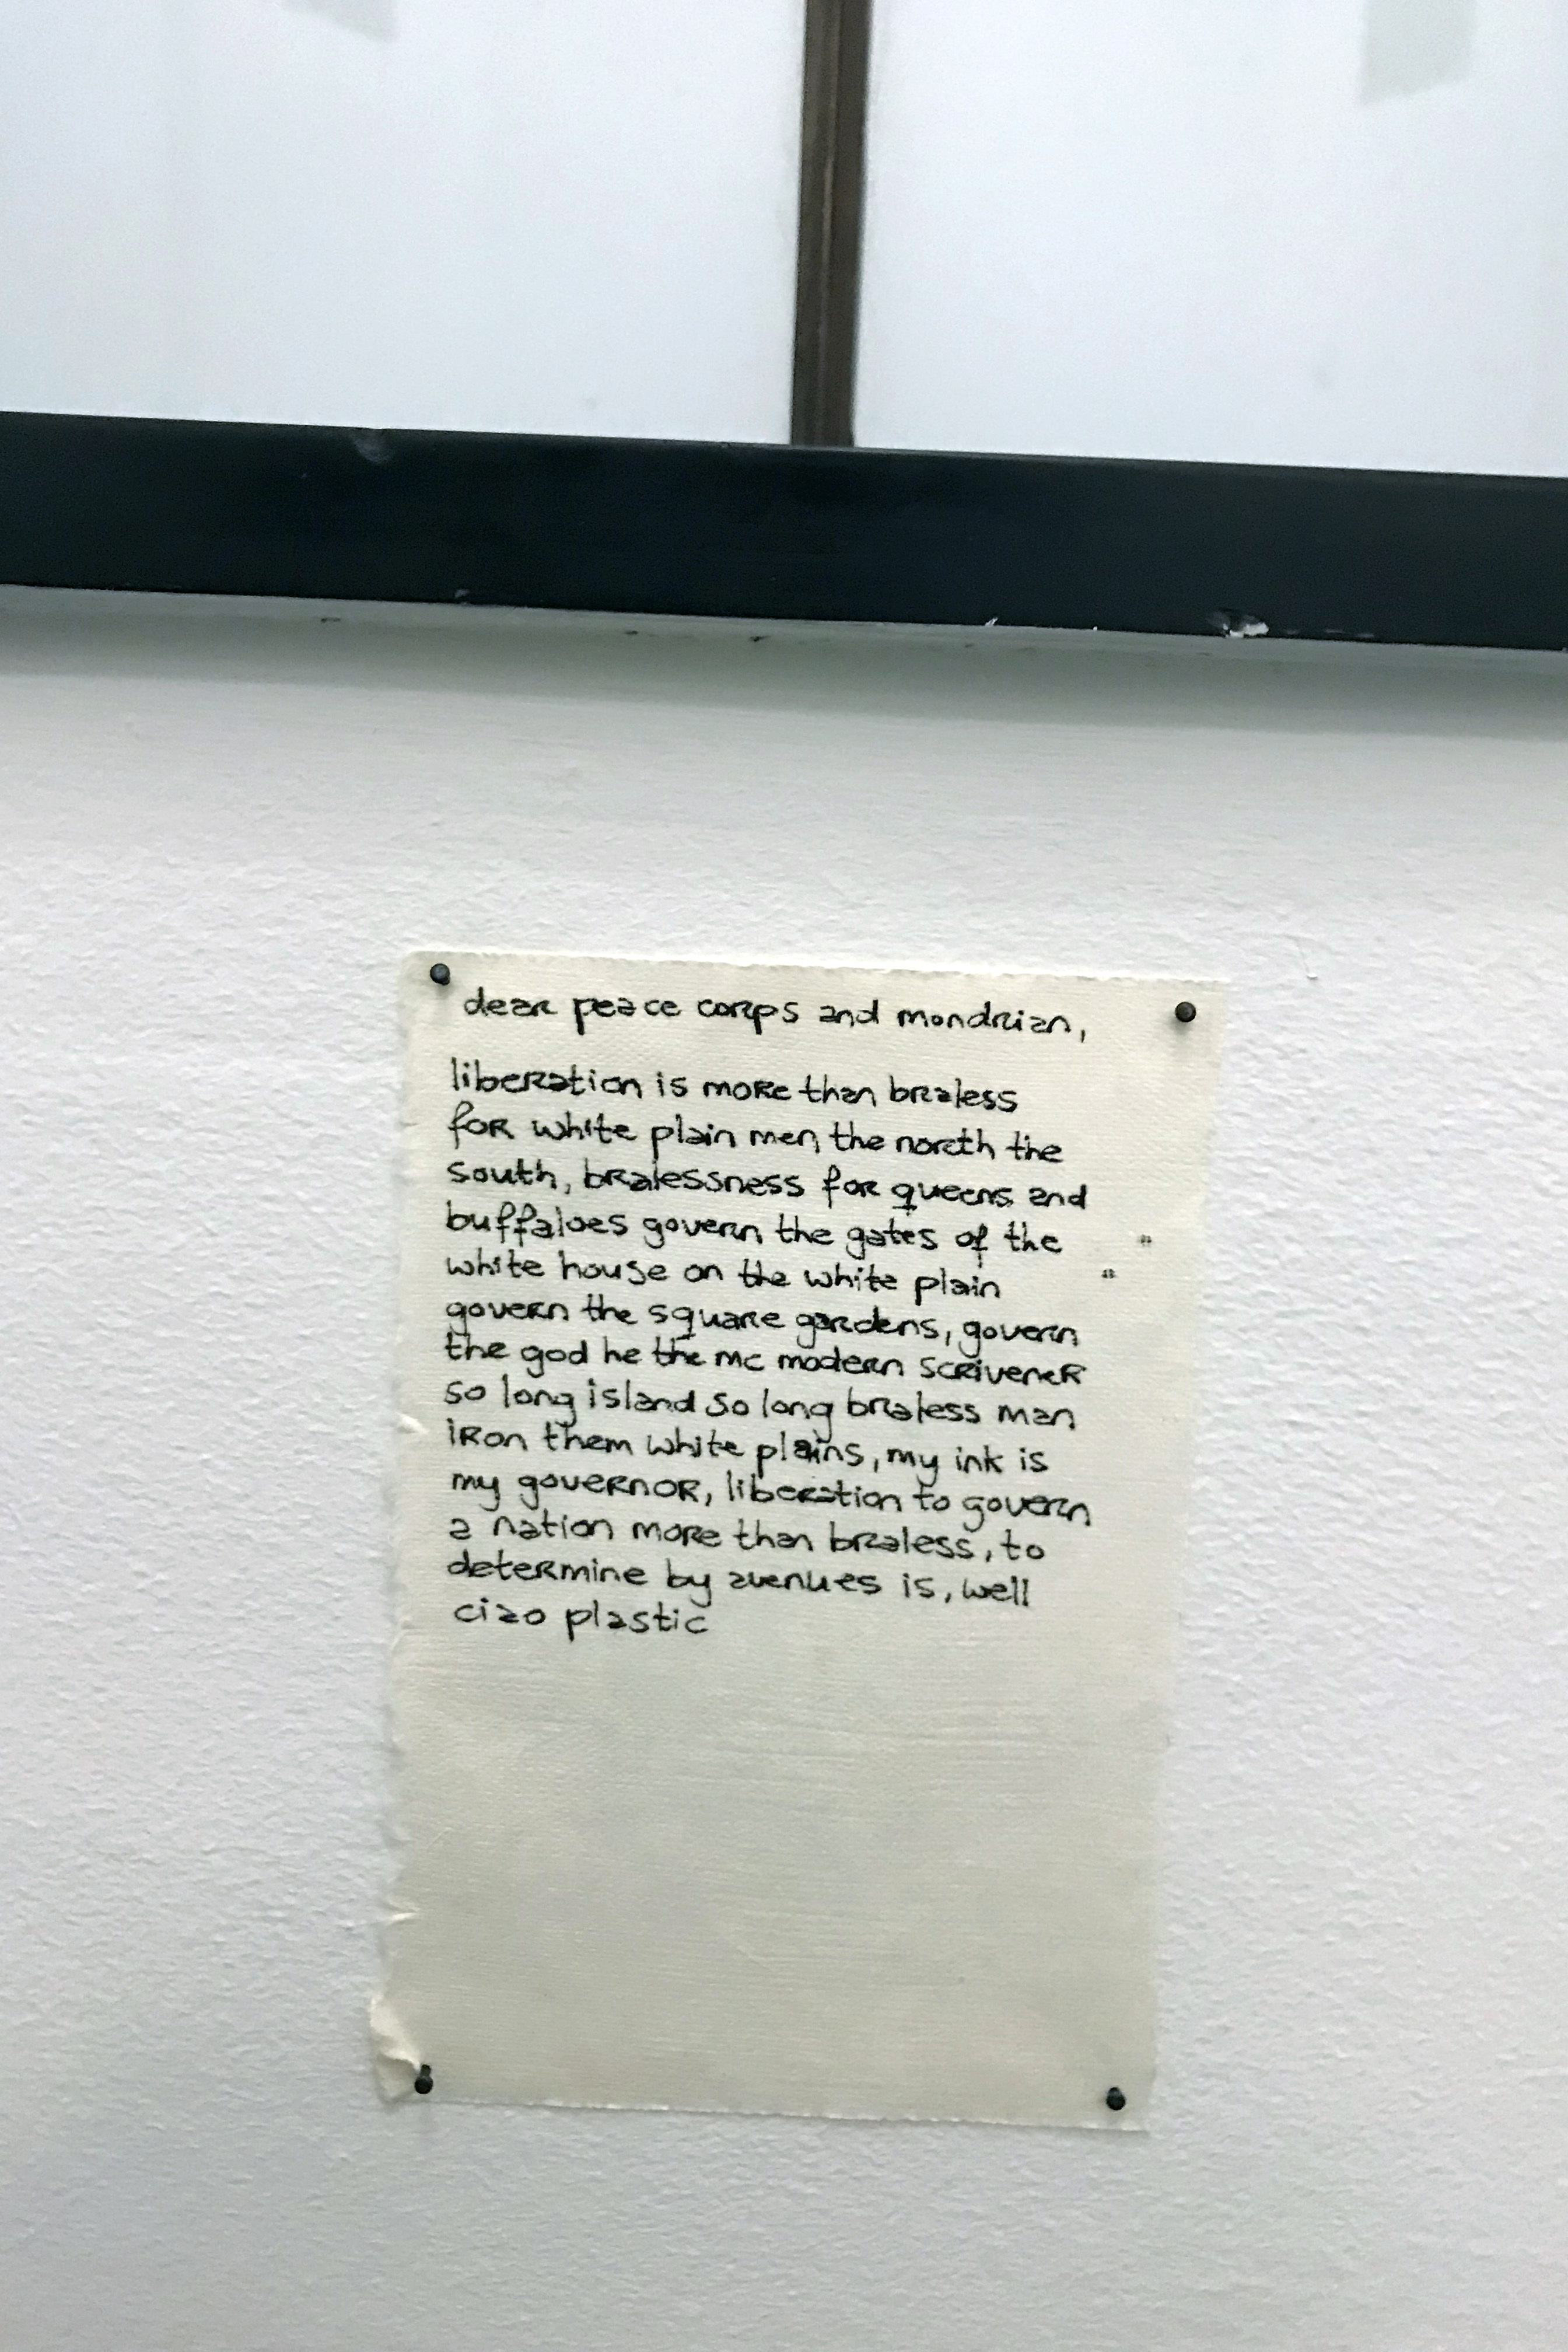 dear peace corps and mondrian,
liberation is more than braless
for white plain men, the north the
south, bralessness for queens and
buffaloes govern the gates of the
white house on the white plain
govern the square gardens, govern
the god he the mc modern scrivener
so long island so long braless man
iron them white plains, my ink is
my governor, liberation to govern
a nation more than braless, to
determine by avenues is, well
ciao plastic